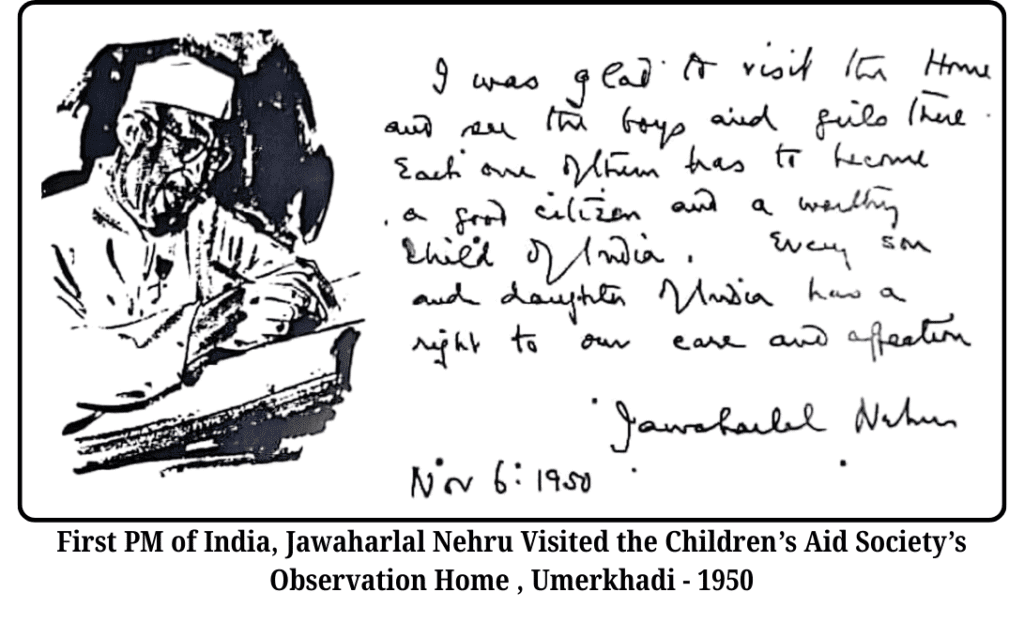 I was glad to visit the Home
and see the boys and girls there.
Each one of them has to become
a good citizen and a worthy
child of India. Every son
and daughter of India has a
right to our care and affection
Jawaharlal Nehru
Nov 6: 1950
First PM of India, Jawaharlal Nehru Visited the Children's Aid Society's
Observation Home , Umerkhadi - 1950